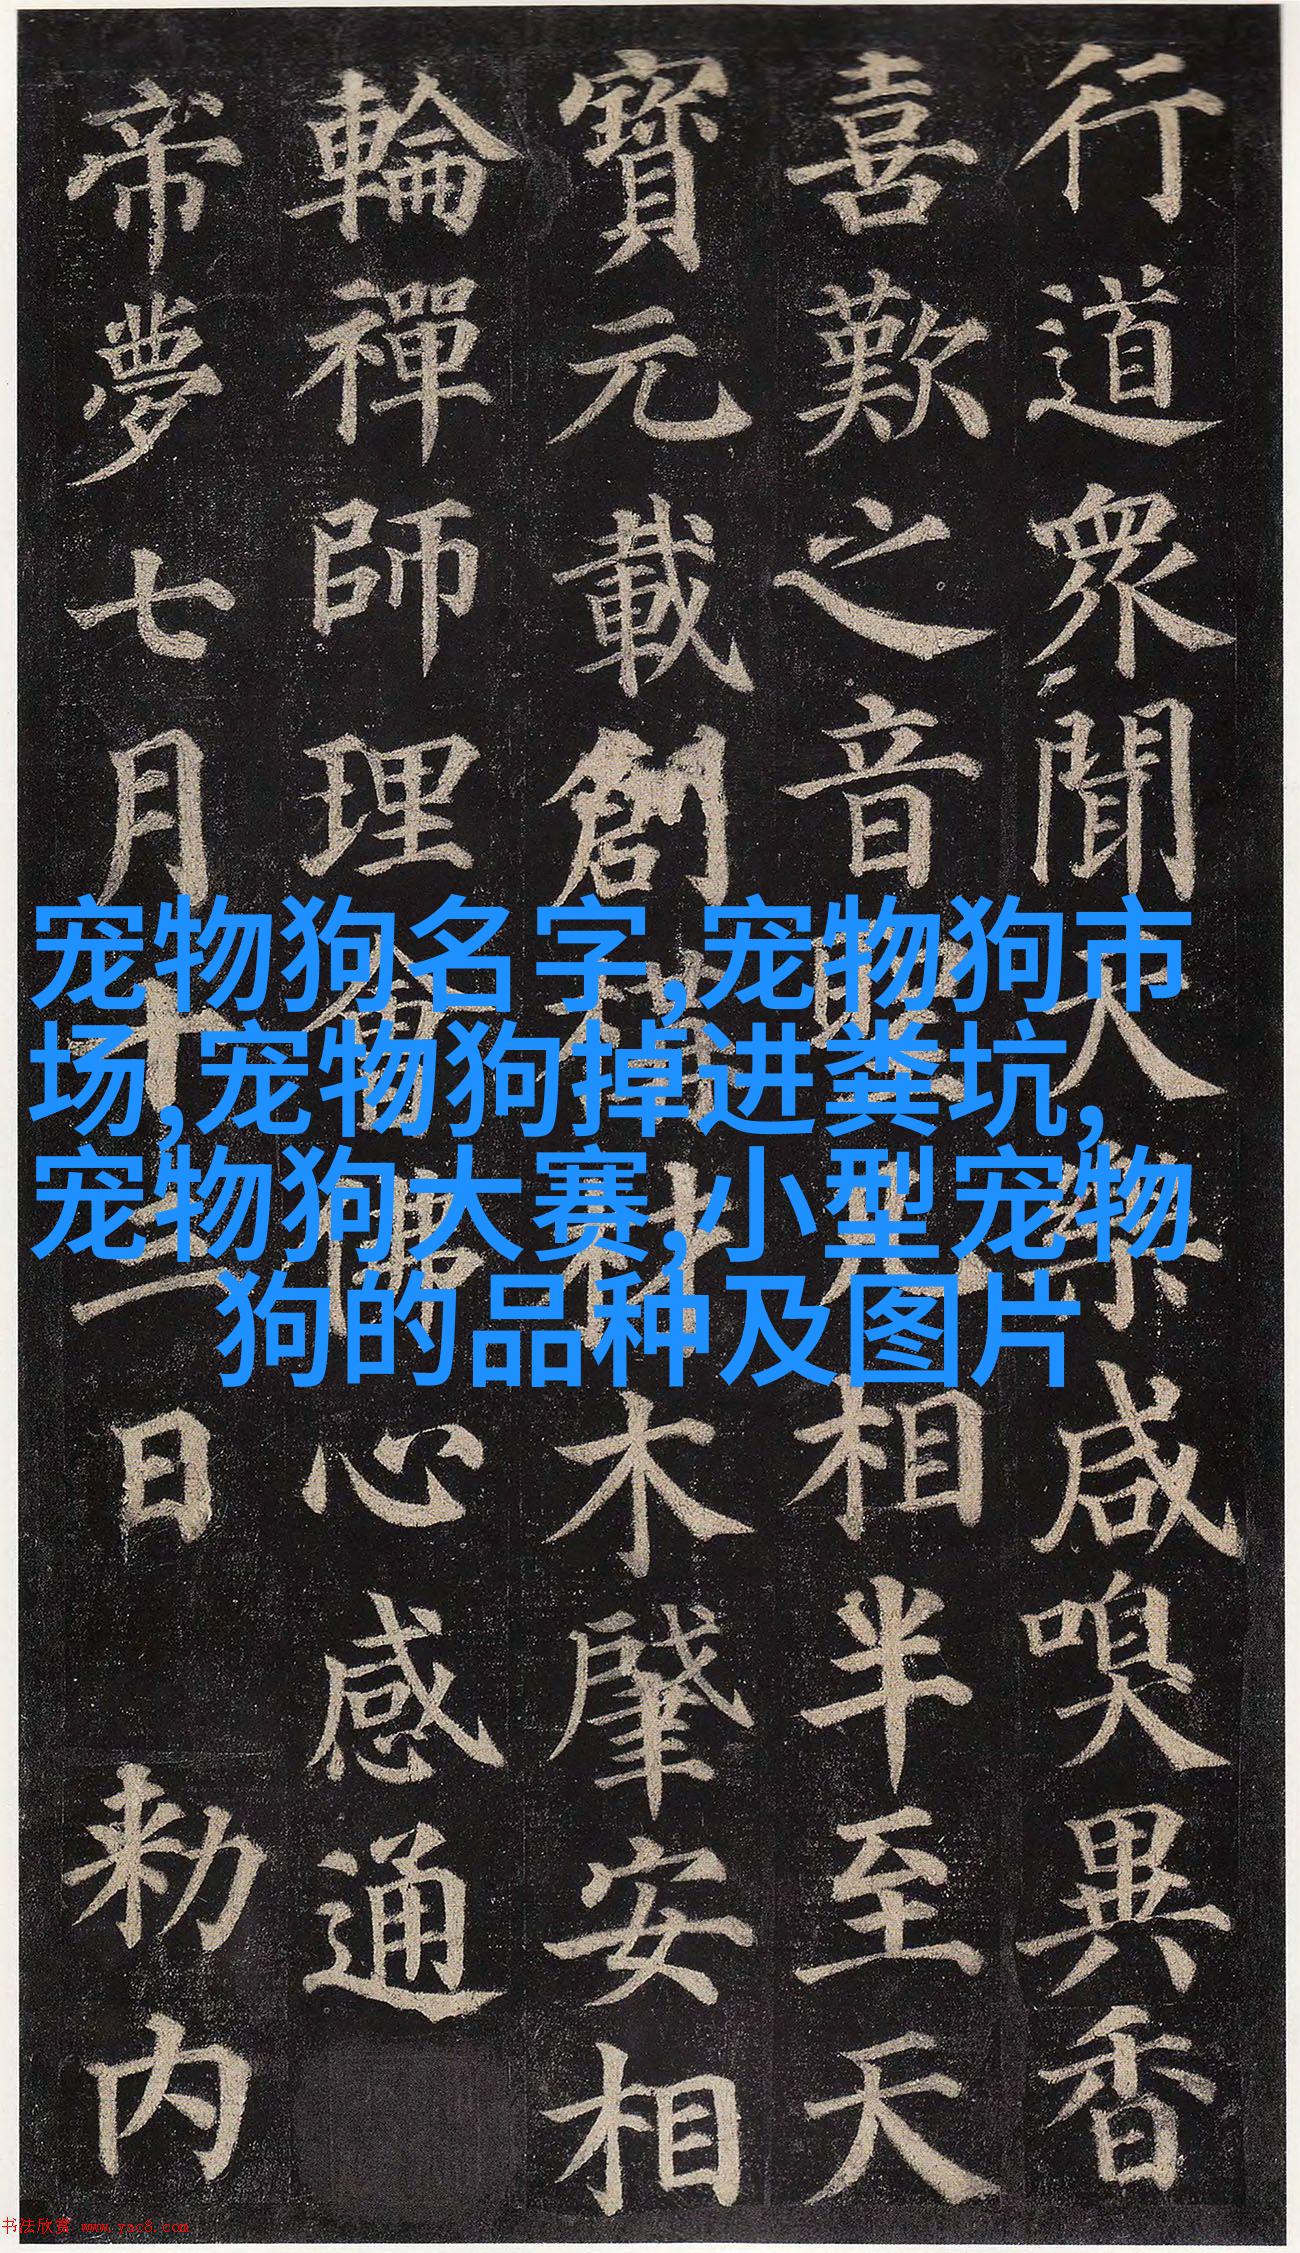 行道眾聞天樂咸嗅異香
喜歎之音聖凡相半至天
寶元載創構材木肇安相
輪禪師理會佛心感通
帝夢七月十三日 勅内
宠物狗名字,宠物狗市
场,宠物狗掉进粪坑,
宠物狗大赛,小型宠物
狗的品种及图片
书法欣赏 www.yac8.com